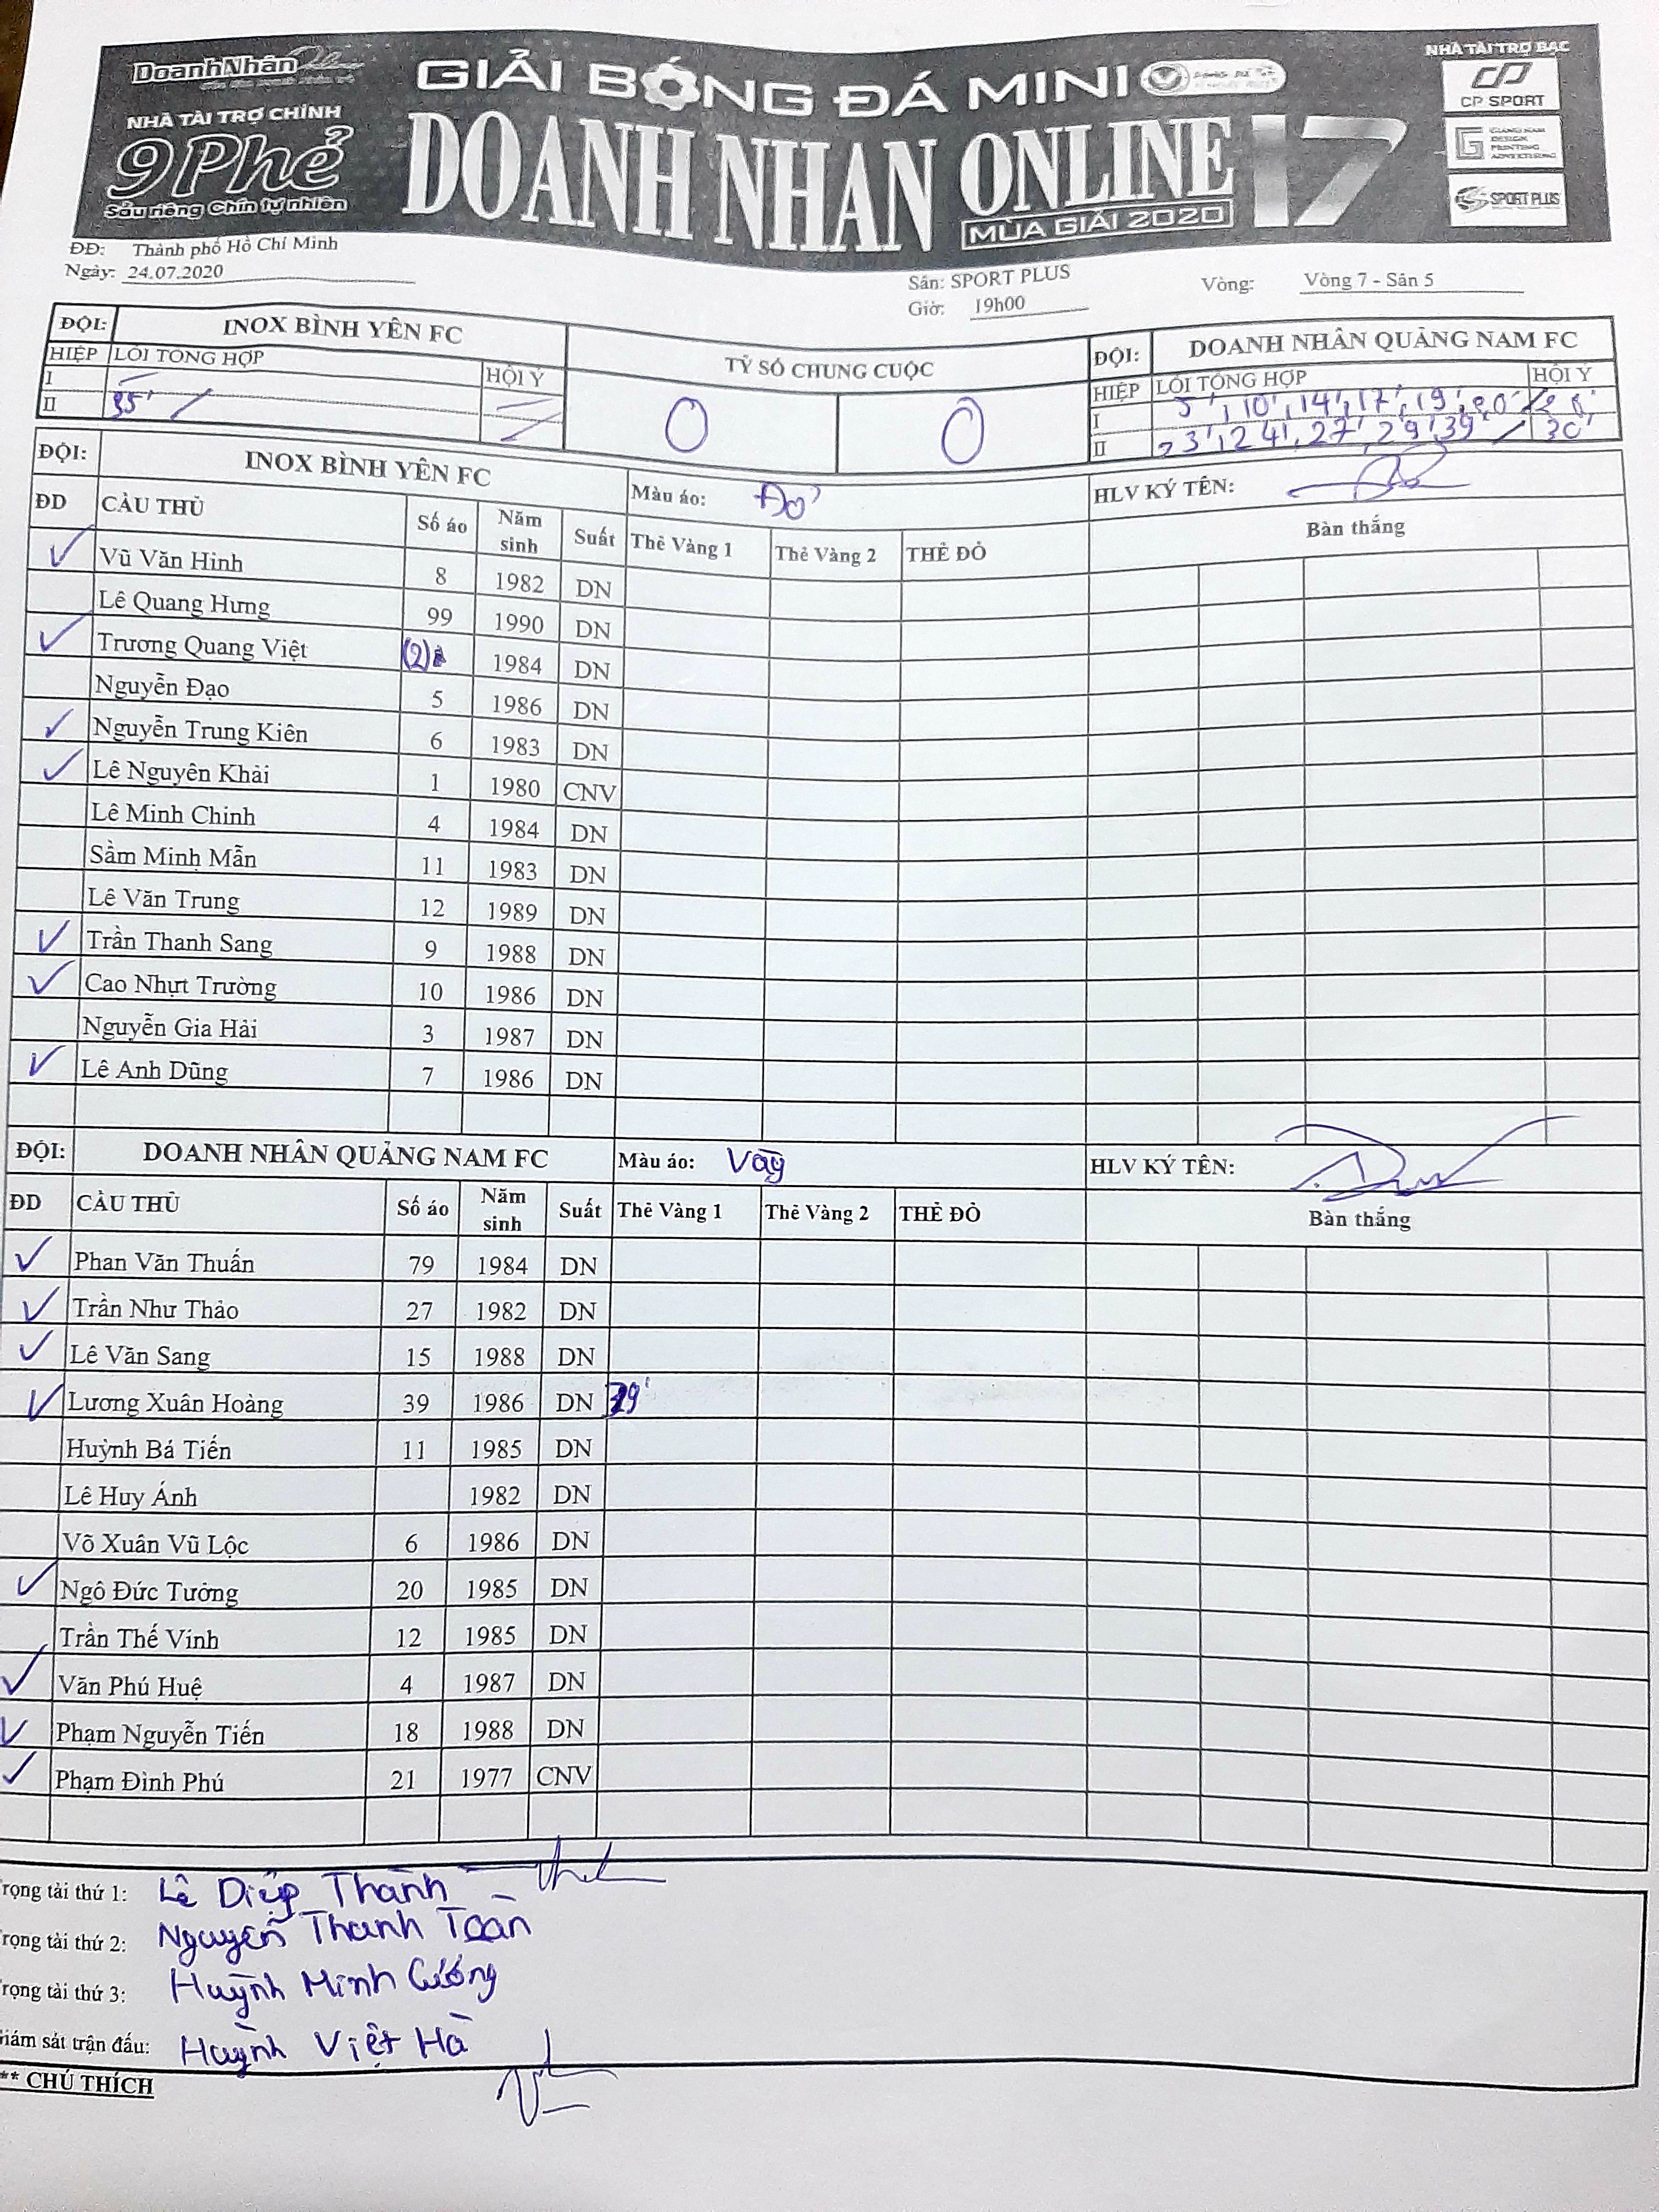 DoanhNhân
NHÀ TÀI TRỢ CHÍNH
9Phẻ
Sầu riêng Chín tự nhiên
GIẢI BÓNG ĐÁ MINI
DOANH NHAN ONLINE 17
MÙA GIẢI 2020
NHÀ TÀI TRỢ BẠC
CP SPORT
GIANG NAM
DESIGN
PRINTING
ADVERTISING
SPORT PLUS
ĐĐ: Thành phố Hồ Chí Minh
Ngày: 24.07.2020
Sân: SPORT PLUS
Giờ: 19h00
Vòng: Vòng 7 - Sân 5
ĐỘI: INOX BÌNH YÊN FC TỶ SỐ CHUNG CUỘC ĐỘI: DOANH NHÂN QUẢNG NAM FC
HIỆP LỖI TỔNG HỢP HỘI Ý HIỆP LỖI TỔNG HỢP HỘI Ý
I I 5', 10', 14', 17', 19', 20'
II 35' 0 0 II 23', 24', 27', 29', 39' 30'
ĐỘI: INOX BÌNH YÊN FC Màu áo: Đỏ HLV KÝ TÊN:
ĐD CẦU THỦ Số áo Năm sinh Suất Thẻ Vàng 1 Thẻ Vàng 2 THẺ ĐỎ Bàn thắng
✓ Vũ Văn Hinh 8 1982 DN
Lê Quang Hưng 99 1990 DN
✓ Trương Quang Việt (2) 1984 DN
Nguyễn Đạo 5 1986 DN
✓ Nguyễn Trung Kiên 6 1983 DN
✓ Lê Nguyên Khải 1 1980 CNV
Lê Minh Chinh 4 1984 DN
Sầm Minh Mẫn 11 1983 DN
Lê Văn Trung 12 1989 DN
✓ Trần Thanh Sang 9 1988 DN
✓ Cao Nhựt Trường 10 1986 DN
Nguyễn Gia Hải 3 1987 DN
✓ Lê Anh Dũng 7 1986 DN
ĐỘI: DOANH NHÂN QUẢNG NAM FC Màu áo: Vàg HLV KÝ TÊN:
ĐD CẦU THỦ Số áo Năm sinh Suất Thẻ Vàng 1 Thẻ Vàng 2 THẺ ĐỎ Bàn thắng
✓ Phan Văn Thuấn 79 1984 DN
✓ Trần Như Thảo 27 1982 DN
✓ Lê Văn Sang 15 1988 DN
✓ Lương Xuân Hoàng 39 1986 DN 39'
Huỳnh Bá Tiến 11 1985 DN
Lê Huy Ánh 1982 DN
Võ Xuân Vũ Lộc 6 1986 DN
✓ Ngô Đức Tưởng 20 1985 DN
Trần Thế Vinh 12 1985 DN
✓ Văn Phú Huệ 4 1987 DN
✓ Phạm Nguyễn Tiến 18 1988 DN
✓ Phạm Đình Phú 21 1977 CNV
rọng tài thứ 1: Lê Diệp Thành
rọng tài thứ 2: Nguyễn Thanh Toàn
rọng tài thứ 3: Huỳnh Minh Cường
iám sát trận đấu: Huỳnh Việt Hà
** CHÚ THÍCH